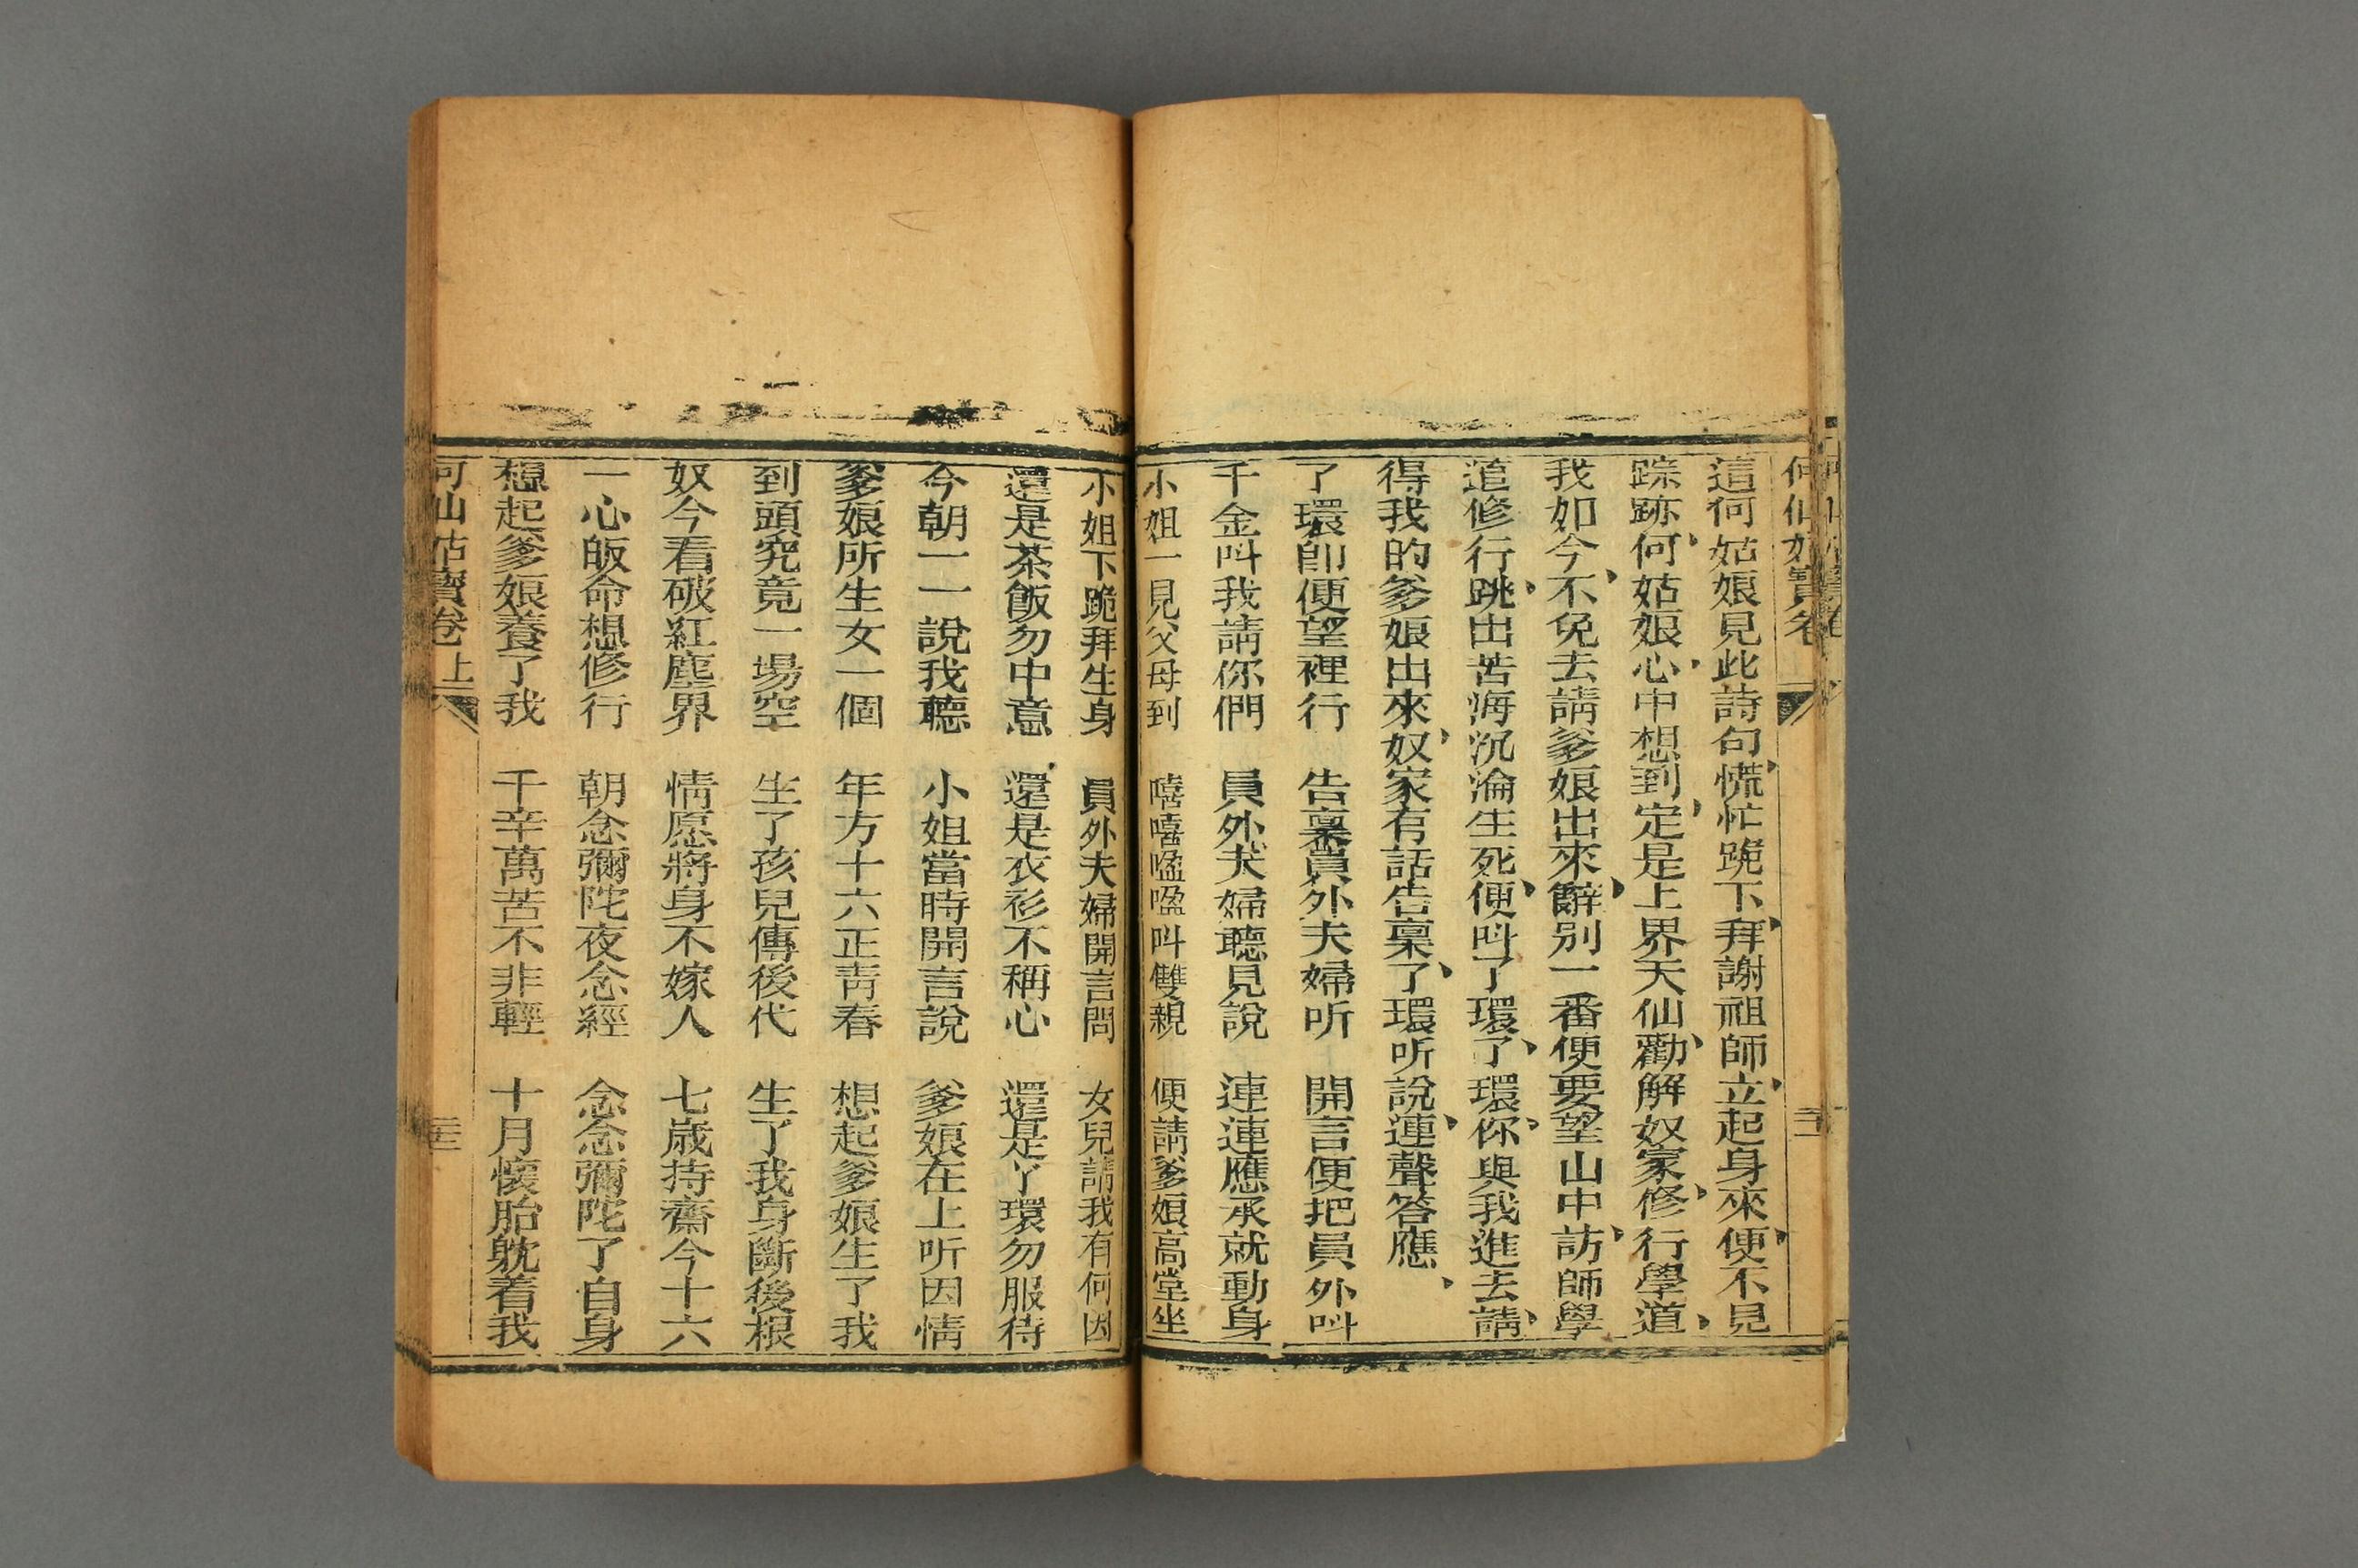 何仙姑寶卷
這何姑娘見此詩句慌忙跪下拜謝祖師立起身來便不見
踪跡何姑娘心中想到定是上界天仙勸解奴家修行學道
我如今不免去請爹娘出來辭別一番便要望山中訪師學
道修行跳出苦海沉淪生死便呌了環了環你與我進去請
得我的爹娘出來奴家有話告稟了環听說連聲答應
了環卽便望裡行 告稟員外夫婦听 開言便把員外呌
千金呌我請你們 員外夫婦聽見說 連連應承就動身
小姐一見父母到 嘻嘻嗌嗌呌雙親 便請爹娘高堂坐
小姐下跪拜生身 員外夫婦開言問 女兒請我有何因
還是茶飯勿中意 還是衣衫不稱心 還是丫環勿服待
今朝一一說我聽 小姐當時開言說 爹娘在上听因情
爹娘所生女一個 年方十六正靑春 想起爹娘生了我
到頭究竟一場空 生了孩兒傳後代 生了我身斷後根
奴今看破紅塵界 情愿將身不嫁人 七歲持齋今十六
一心皈命想修行 朝念彌陀夜念經 念念彌陀了自身
想起爹娘養了我 千辛萬苦不非輕 十月懷胎躭着我
何仙姑寶卷 上